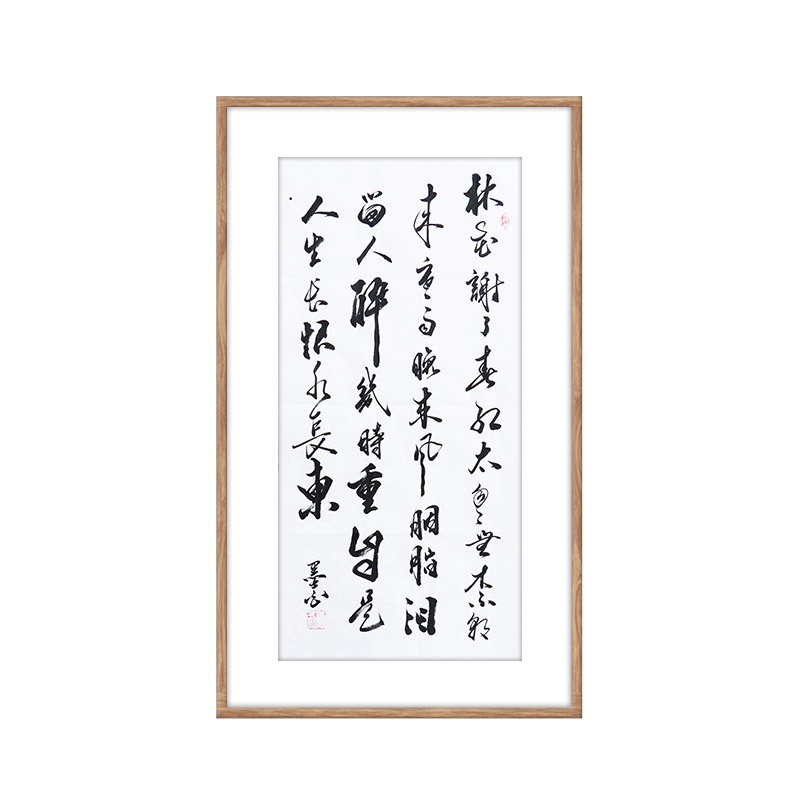 林花謝了春紅太匆々無柰朝
来寒雨晚来風胭脂泪
留人醉幾時重自是
人生长恨水長東
墨